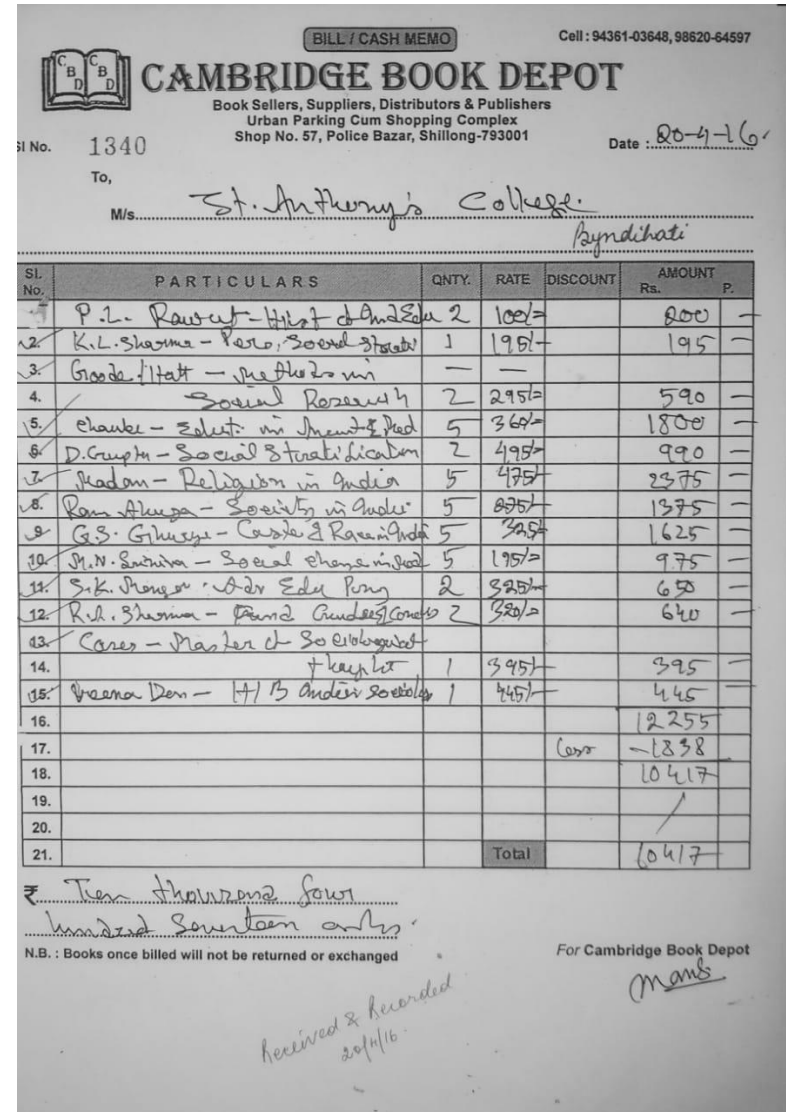 BILL / CASH MEMO
Cell : 94361-03648, 98620-64597
CBD CBD CAMBRIDGE BOOK DEPOT
Book Sellers, Suppliers, Distributors & Publishers
Urban Parking Cum Shopping Complex
Shop No. 57, Police Bazar, Shillong-793001
Sl No. 1340 Date : 20-4-16
To,
M/s St. Anthony's College.
Byndihati
SL. No. PARTICULARS QNTY. RATE DISCOUNT AMOUNT Rs. P.
P.L. Rawut - Hist of Ind Edu 2 100/= 200 -
2. K.L. Sharma - Social 1 195/- 195 -
3. Goode / Hatt - Methods in — —
4. Social Research 2 295/= 590 -
5. - in 5 360/- 1800 -
6. D. Gupta - Social Stratification 2 495/= 990 -
7. Madan - Religion in India 5 475/- 2375 -
8. Ram Ahuja - Society in India 5 275/- 1375 -
9. G.S. Ghurye - Caste & Race in India 5 325/- 1625 -
10. M.N. - Social Change in 5 195/= 975 -
11. S.K. - Edu 2 325/- 650 -
12. R.A. Sharma - 2 320/= 640 -
13. - Master of Sociological
14. 1 395/- 395 -
15. Veena Das - H/B 1 445/- 445 -
16. 12255
17. Less -1838
18. 10417
19.
20.
21. Total 10417 -
₹ Ten thousand four
hundred Seventeen only.
N.B. : Books once billed will not be returned or exchanged
For Cambridge Book Depot
Received & Recorded
20/4/16